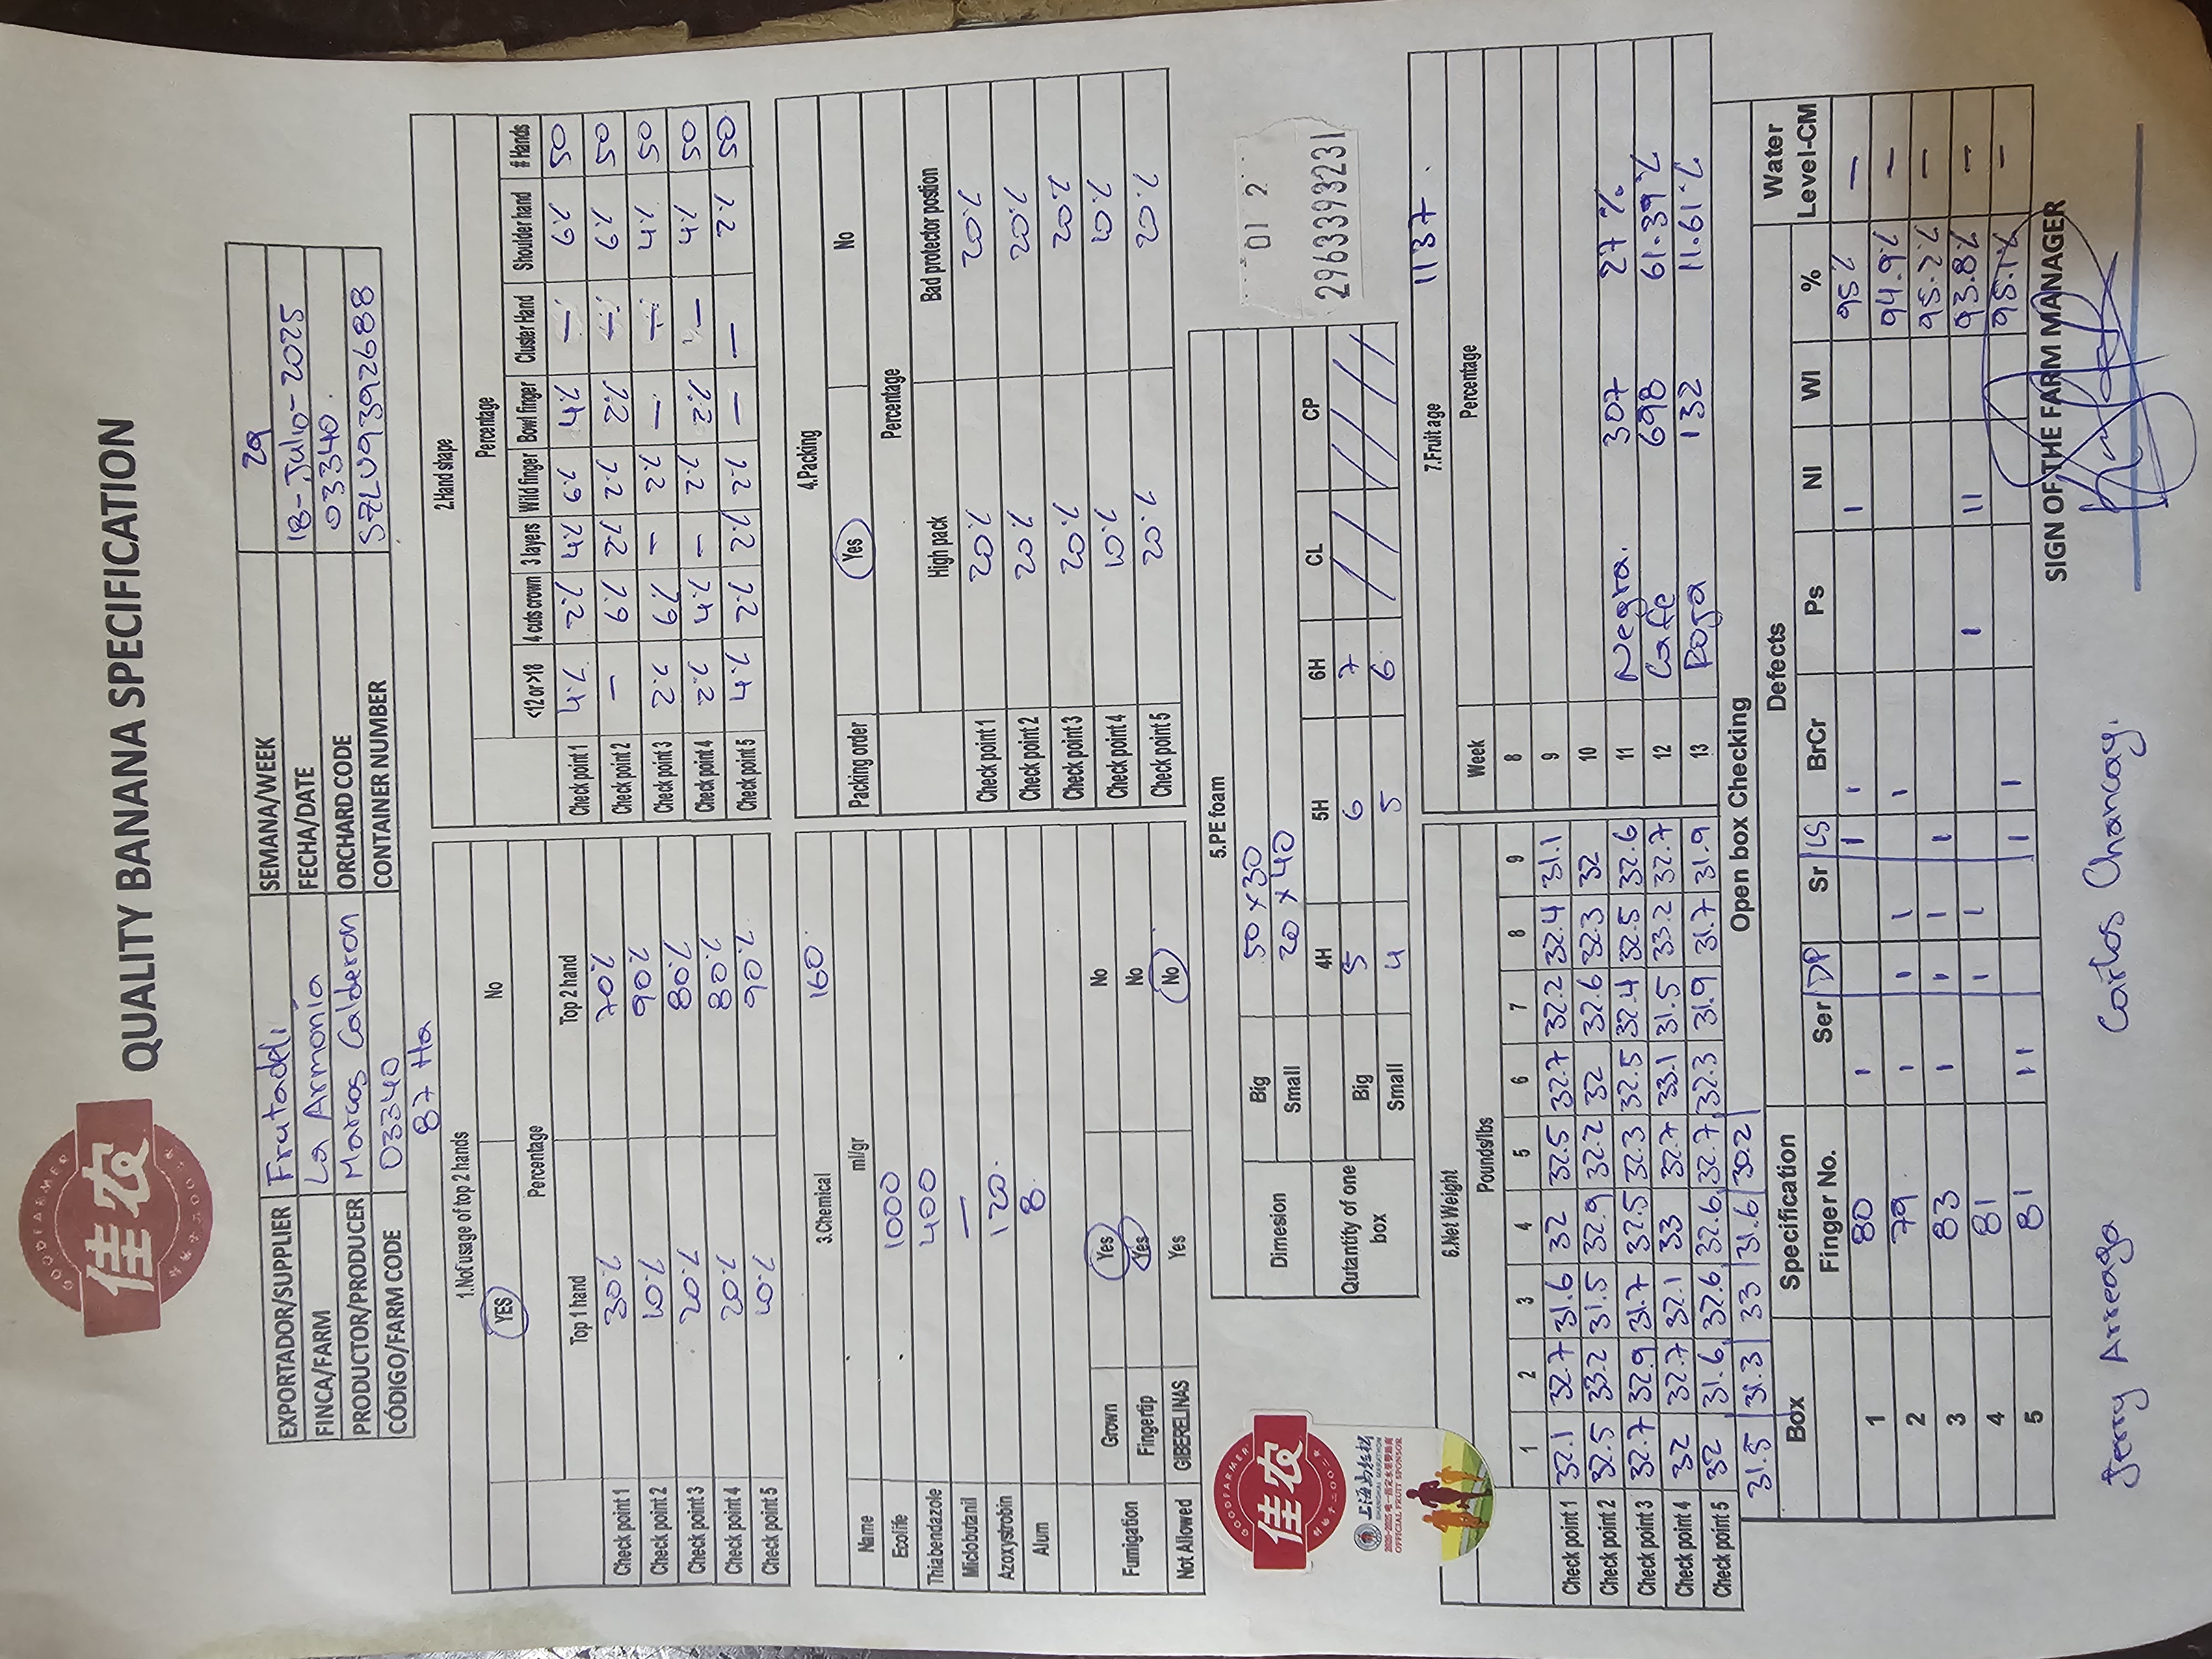 GOODFARMER
佳农
QUALITY BANANA SPECIFICATION
EXPORTADOR/SUPPLIER Frutadeli SEMANA/WEEK 29
FINCA/FARM La Armonía FECHA/DATE 18-Julio-2025
PRODUCTOR/PRODUCER Marcos Calderon ORCHARD CODE 03340.
CÓDIGO/FARM CODE 03340 CONTAINER NUMBER SZLU9392688
87 Ha
1.Not usage of top 2 hands
YES No
Percentage
Top 1 hand Top 2 hand
Check point 1 30% 70%
Check point 2 10% 90%
Check point 3 20% 80%
Check point 4 20% 80%
Check point 5 10% 90%
2.Hand shape
Percentage
<12 or >18 4 cuts crown 3 layers Wild finger Bowl finger Cluster Hand Shoulder hand # Hands
Check point 1 4% 2% 4% 6% 4% — 6% 50
Check point 2 — 6% 2% 2% 2% — 6% 50
Check point 3 2% 6% — 2% — — 4% 50
Check point 4 2% 4% — 2% 2% — 4% 50
Check point 5 4% 2% 2% 2% — — 2% 50
3.Chemical 160
Name ml/gr
Ecolife 1000
Thiabendazole 400
Miclobutanil —
Azoxystrobin 120.
Alum 8.
Fumigation Grown Yes No
Fingertip Yes No
Not Allowed GIBERELINAS Yes No
4.Packing
Packing order Yes No
Percentage
High pack Bad protector postion
Check point 1 20% 20%
Check point 2 20% 20%
Check point 3 20% 20%
Check point 4 10% 10%
Check point 5 20% 20%
GOODFARMER
佳农
上海马拉松
SHANGHAI MARATHON
2020-2025唯一指定水果赞助商
OFFICIAL FRUIT SPONSOR
5.PE foam
Dimesion Big 50 x 30
Small 20 x 40
4H 5H 6H CL CP
Qutantity of one box Big 5 6 7
Small 4 5 6
01 2
2963393231
6.Net Weight
Pounds/lbs
1 2 3 4 5 6 7 8 9
Check point 1 32.1 32.7 31.6 32 32.5 32.7 32.2 32.4 31.1
Check point 2 32.5 33.2 31.5 32.9 32.2 32 32.6 32.3 32
Check point 3 32.7 32.9 31.7 32.5 32.3 32.5 32.4 32.5 32.6
Check point 4 32 32.7 32.1 33 32.7 33.1 31.5 33.2 32.7
Check point 5 32 31.6 32.6 32.6 32.7 32.3 31.9 31.7 31.9
31.5 31.3 33 31.6 30.2
7.Fruit age 1137.
Week Percentage
8
9
10
11 Negra. 307 27%
12 Cafe 698 61.39%
13 Roja 132 11.61%
Open box Checking
Box Specification Defects Water Level-CM
Finger No. Ser DP Sr LS BrCr Ps NI WI %
1 80 I I I I 95% —
2 79 I I I I 94.9% —
3 83 I I I I 95.2% —
4 81 I I I II 93.8% —
5 81 II I I 95.1% —
SIGN OF THE FARM MANAGER
Jerry Arreaga Carlos Chancay.